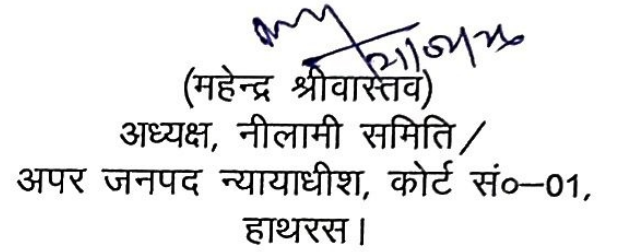 (महेन्द्र श्रीवास्तव)
अध्यक्ष, नीलामी समिति/
अपर जनपद न्यायाधीश, कोर्ट सं०–01,
हाथरस।